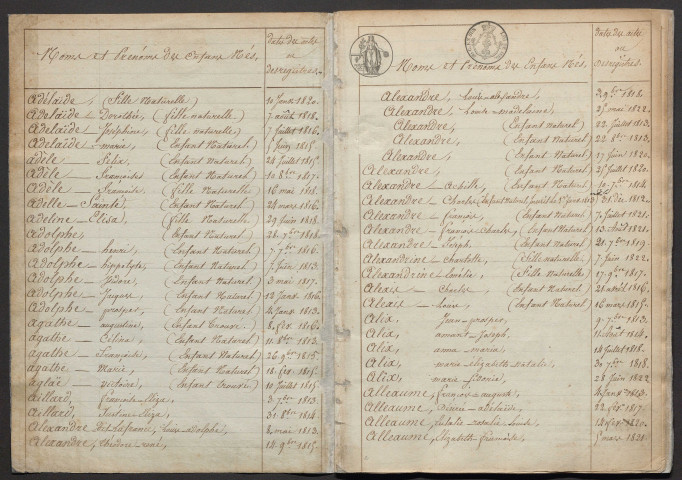 Noms et Prénoms des Enfans Nés.
Date des actes
ou
des registres.
Adélaïde, (fille Naturelle)
10 Janv. 1820.
Adélaïde - Dorothée, (fille naturelle)
7 août 1818.
Adélaïde - Joséphine, (fille naturelle)
7 Juillet 1816.
Adélaïde - marie, (Enfant Naturel)
5 Juin 1815
adèle - Félix, (Enfant Naturel)
24 Juillet 1815
adèle - Françoise (Enfant Naturel)
10 8bre 1817.
Adèle - françoise, (fille Naturelle)
16 mai 1818.
Adèlle (Sainte) (Enfant Naturel)
24 mars 1816.
Adeline - Elisa, (fille Naturelle)
29 Juin 1818.
Adolphe, (Enfant Naturel)
28 9bre 1818.
Adolphe - henri, (Enfant Naturel)
7 7bre 1816.
Adolphe - hippolyte, (Enfant Naturel)
7 Juin 1813.
Adolphe - Isidore, (Enfant Naturel)
3 mai 1817.
Adolphe - Jacques, (Enfant Naturel)
22 Janv. 1816.
Adolphe - prosper, (Enfant Naturel)
4 Janv. 1813.
Agathe - augustine, (Enfant trouvé)
8 fév. 1816.
agathe - Célina, (Enfant Naturel)
11 8bre 1813.
agathe - Françoise, (Enfant Naturel)
26 9bre 1815.
agathe - Marie, (Enfant Naturel)
18 fév. 1815.
aglaé - victoire, (Enfant trouvé)
10 Juillet 1815.
Aillard, françoise Eliza,
3 7bre 1813.
Aillard, Justine Eliza,
31 8bre 1814.
Alexandre dit Lafrance, Louis Adolphe,
8 mai 1813.
Alexandre, théodore rené,
14 9bre 1815.
Noms et Prénoms des Enfans Nés.
Date des actes
ou
des registres.
Alexandre, Louis alexandre,
3 9bre 1818.
Alexandre, Louise madelaine,
25 mai 1822.
Alexandre, (Enfant Naturel)
22 Juillet 1813.
Alexandre, (Enfant Naturel)
22 8bre 1813.
Alexandre, (Enfant Naturel)
17 Juin 1820.
Alexandre, (Enfant Naturel)
25 Juillet 1820.
Alexandre - Achille, (Enfant Naturel)
10 7bre 1814.
Alexandre - Charles, (Enfant Naturel,
31 Déc. 1812.
Alexandre - françois, (Enfant Naturel)
7 Juillet 1821.
Alexandre - françois Charles, (Enfant Naturel)
13 Août 1821.
Alexandre - Joseph, (Enfant Naturel)
21 7bre 1819.
Alexandrine - Charlotte, (fille naturelle)
7 Juin 1822.
Alexandrine - Emélie, (fille Naturelle)
17 9bre 1817.
Alexis - Charles (Enfant Naturel)
28 avril 1816.
Alexis - Louis, (Enfant Naturel)
16 mars 1815.
Alix, Jean prosper,
9 7bre 1813.
Alix, amant Joseph,
11 Août 1814.
Alix, anne maria,
14 Juillet 1818.
Alix, marie Elizabeth natalie,
30 7bre 1818.
Alix, marie
28 Juin 1822.
Alleaume, françois auguste,
Janv. 1813.
Alleaume, Désirée adélaïde,
22 fév. 1817.
Alleaume, Eulalie
fév. 1820.
Alleaume, Elizabeth françoise,
5 mars 1821.